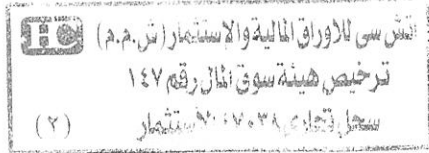 اتش سى للاوراق المالية والاستثمار (ش.م.م) HC
ترخيص هيئة سوق المال رقم ١٤٧
سجل تجارى استثمار (٢)